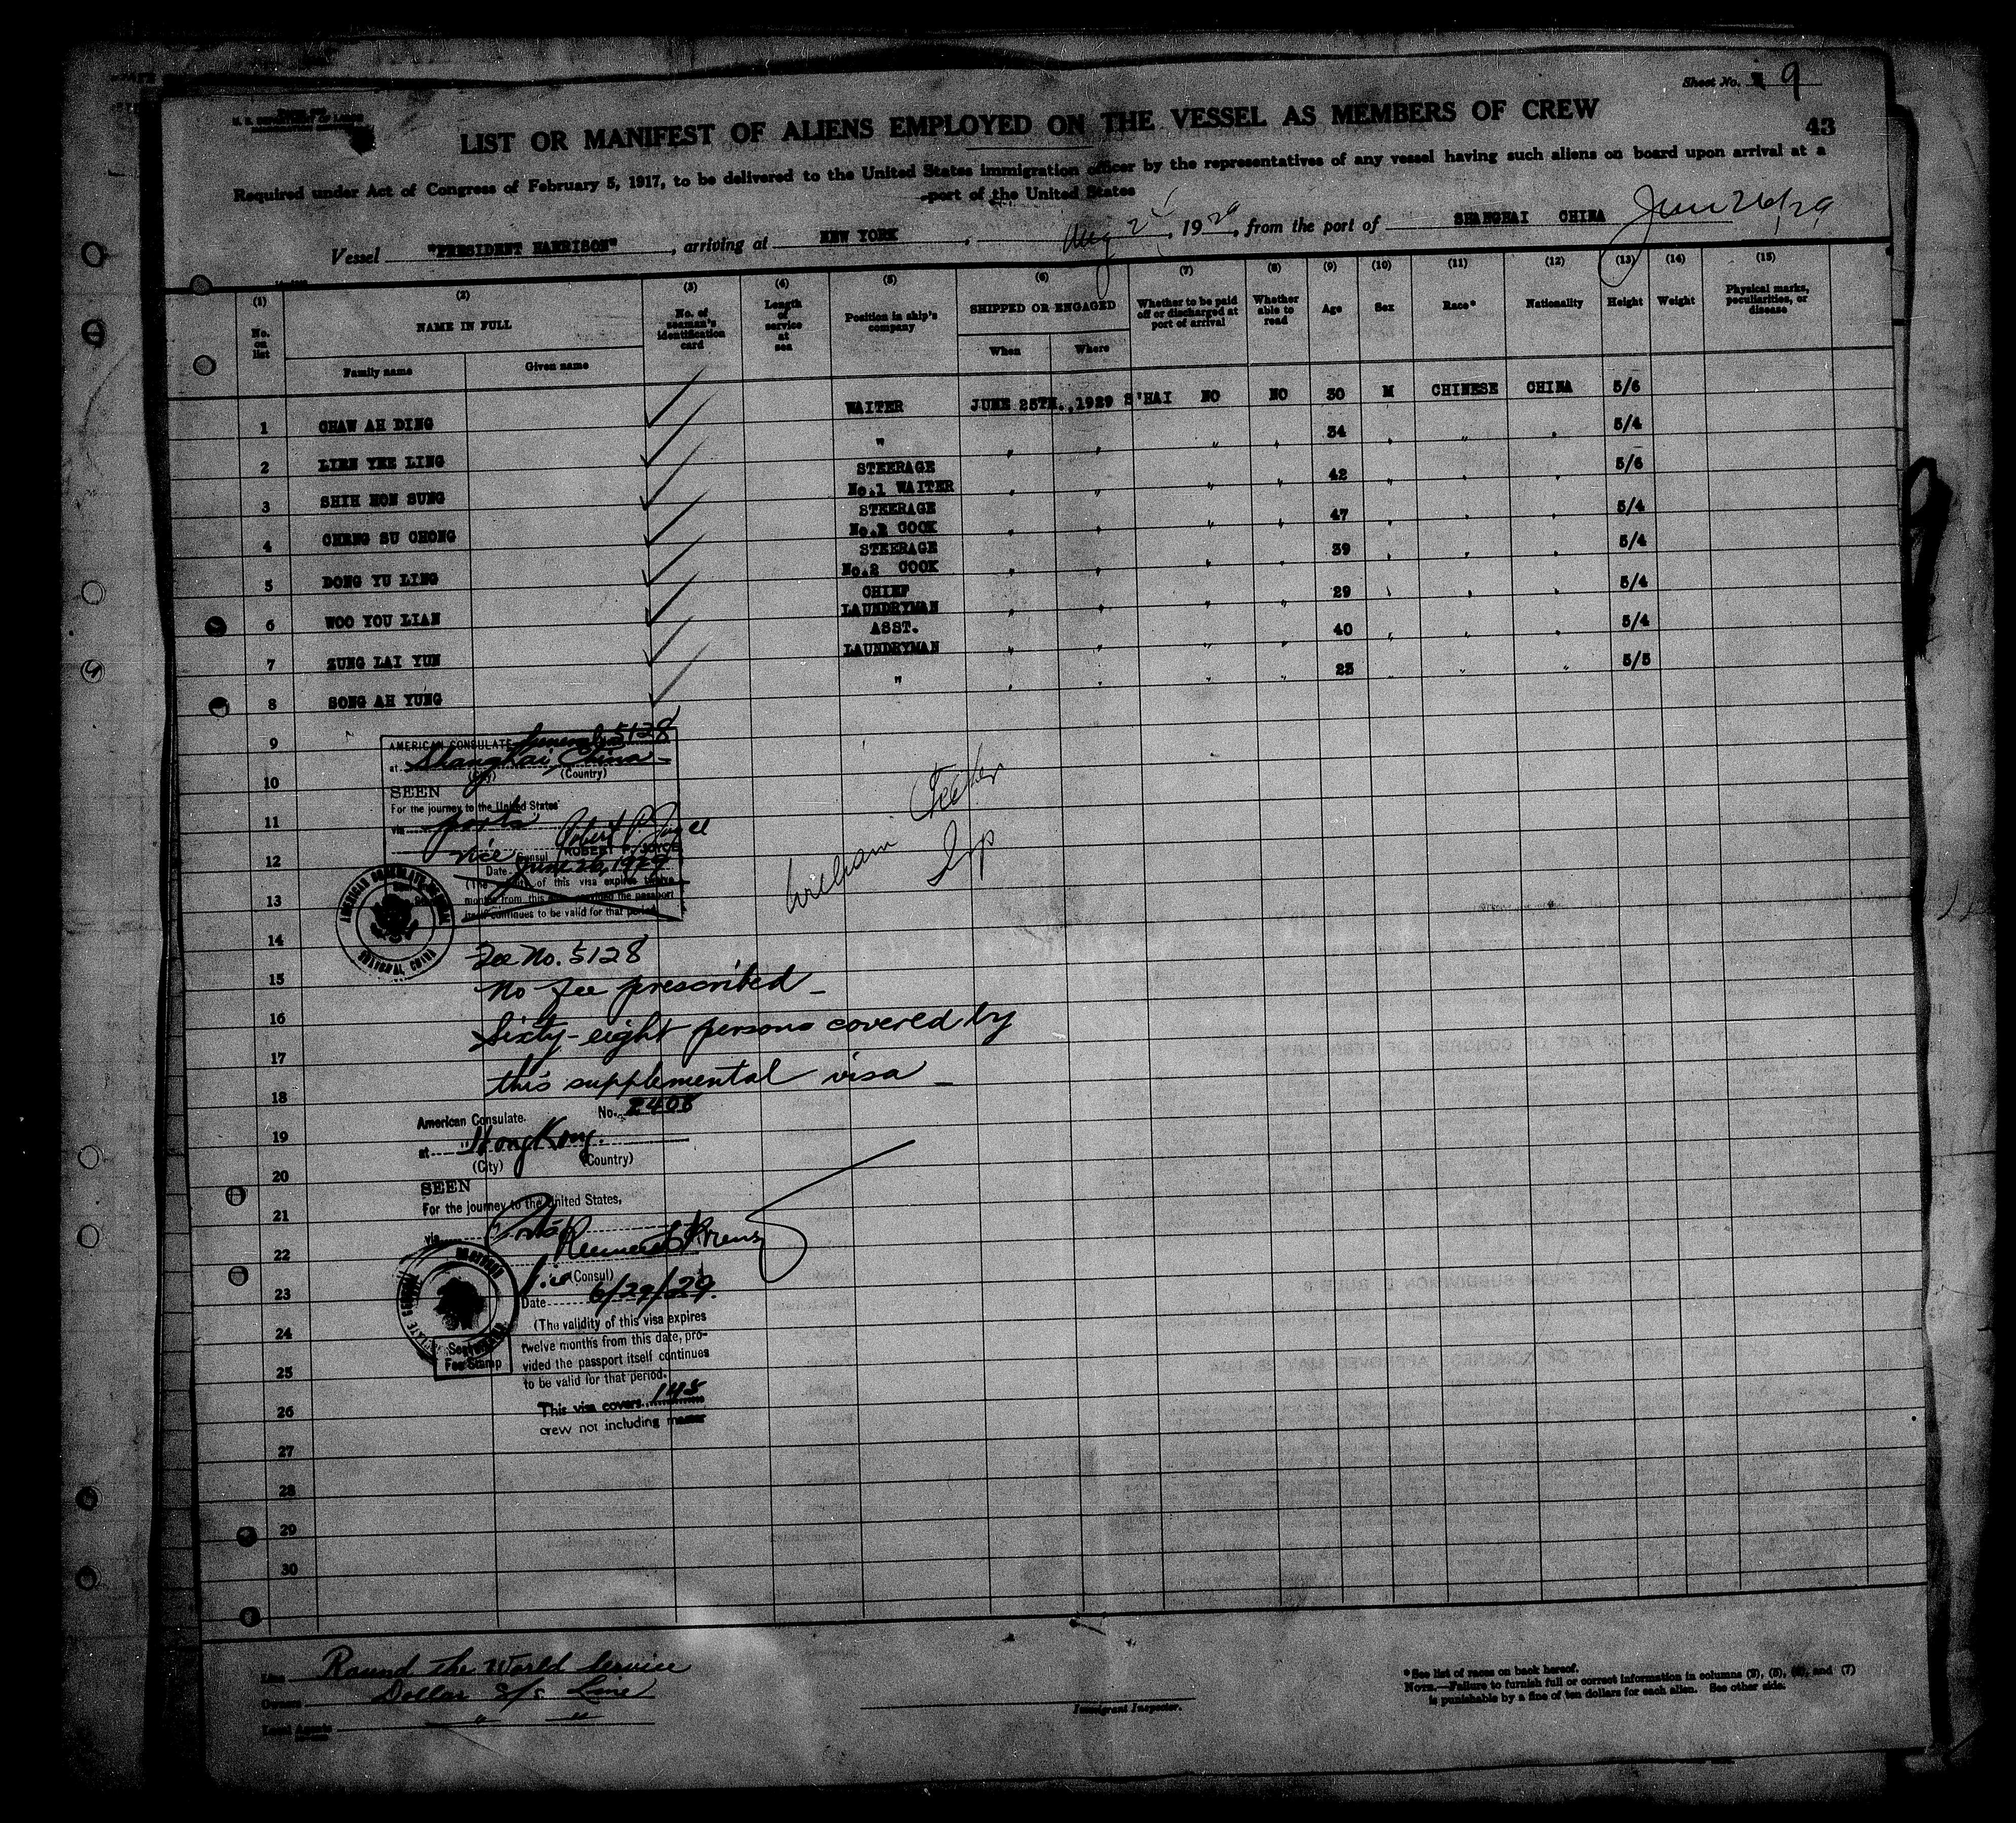 Sheet No. 9
LIST OR MANIFEST OF ALIENS EMPLOYED ON THE VESSEL AS MEMBERS OF CREW
43
Required under Act of Congress of February 5, 1917, to be delivered to the United States immigration officer by the representatives of any vessel having such aliens on board upon arrival at a
port of the United States
Vessel "PRESIDENT HARRISON", arriving at NEW YORK, Aug 2, 1929, from the port of SHANGHAI CHINA June 26/29
(1) (2) (3) (4) (5) (6) (7) (8) (9) (10) (11) (12) (13) (14) (15)
No. on list
NAME IN FULL
Family name
Given name
No. of seaman's identification card
Length of service at sea
Position in ship's company
SHIPPED OR ENGAGED
When
Where
Whether to be paid off or discharged at port of arrival
Whether able to read
Age
Sex
Race*
Nationality
Height
Weight
Physical marks, peculiarities, or disease
1 CHAW AH DING WAITER JUNE 25TH.,1929 S'HAI NO NO 30 M CHINESE CHINA 5/6
2 LIEN YEE LING " " " " " 34 " " " 5/4
3 SHIH HON SUNG STEERAGE No.1 WAITER " " " " 42 " " " 5/6
4 CHENG SU CHONG STEERAGE No.2 COOK " " " " 47 " " " 5/4
5 DONG YU LING STEERAGE No.2 COOK " " " " 39 " " " 5/4
6 WOO YOU LIAN CHIEF LAUNDRYMAN " " " " 29 " " " 5/4
7 ZUNG LAI YUN ASST. LAUNDRYMAN " " " " 40 " " " 5/4
8 SONG AH YUNG " " " " " 25 " " " 5/5
9
10
11
12
13
14
15
16
17
18
19
20
21
22
23
24
25
26
27
28
29
30
AMERICAN CONSULATE General 5128
at Shanghai, China
(City) (Country)
SEEN
For the journey to the United States
via ports
Robert P. Joyce
ROBERT P. JOYCE
Vice Consul
Date June 26, 1929
(The validity of this visa expires twelve
months from this date provided the passport
itself continues to be valid for that period)
AMERICAN CONSULATE GENERAL
SHANGHAI, CHINA
William
Insp
Fee No. 5128
No fee prescribed
Sixty-eight persons covered by
this supplemental visa
American Consulate. No. 2408
at HongKong.
(City) (Country)
SEEN
For the journey to the United States,
via Ports
Vice (Consul)
Date 6/29/29.
(The validity of this visa expires
twelve months from this date, pro-
vided the passport itself continues
to be valid for that period.
Fee Stamp
This visa covers 145
crew not including master
Line Round the World Service
Owners Dollar S/S Line
Local Agents " "
Immigrant Inspector.
*See list of races on back hereof.
NOTE.—Failure to furnish full or correct information in columns (2), (5), (6), and (7)
is punishable by a fine of ten dollars for each alien. See other side.